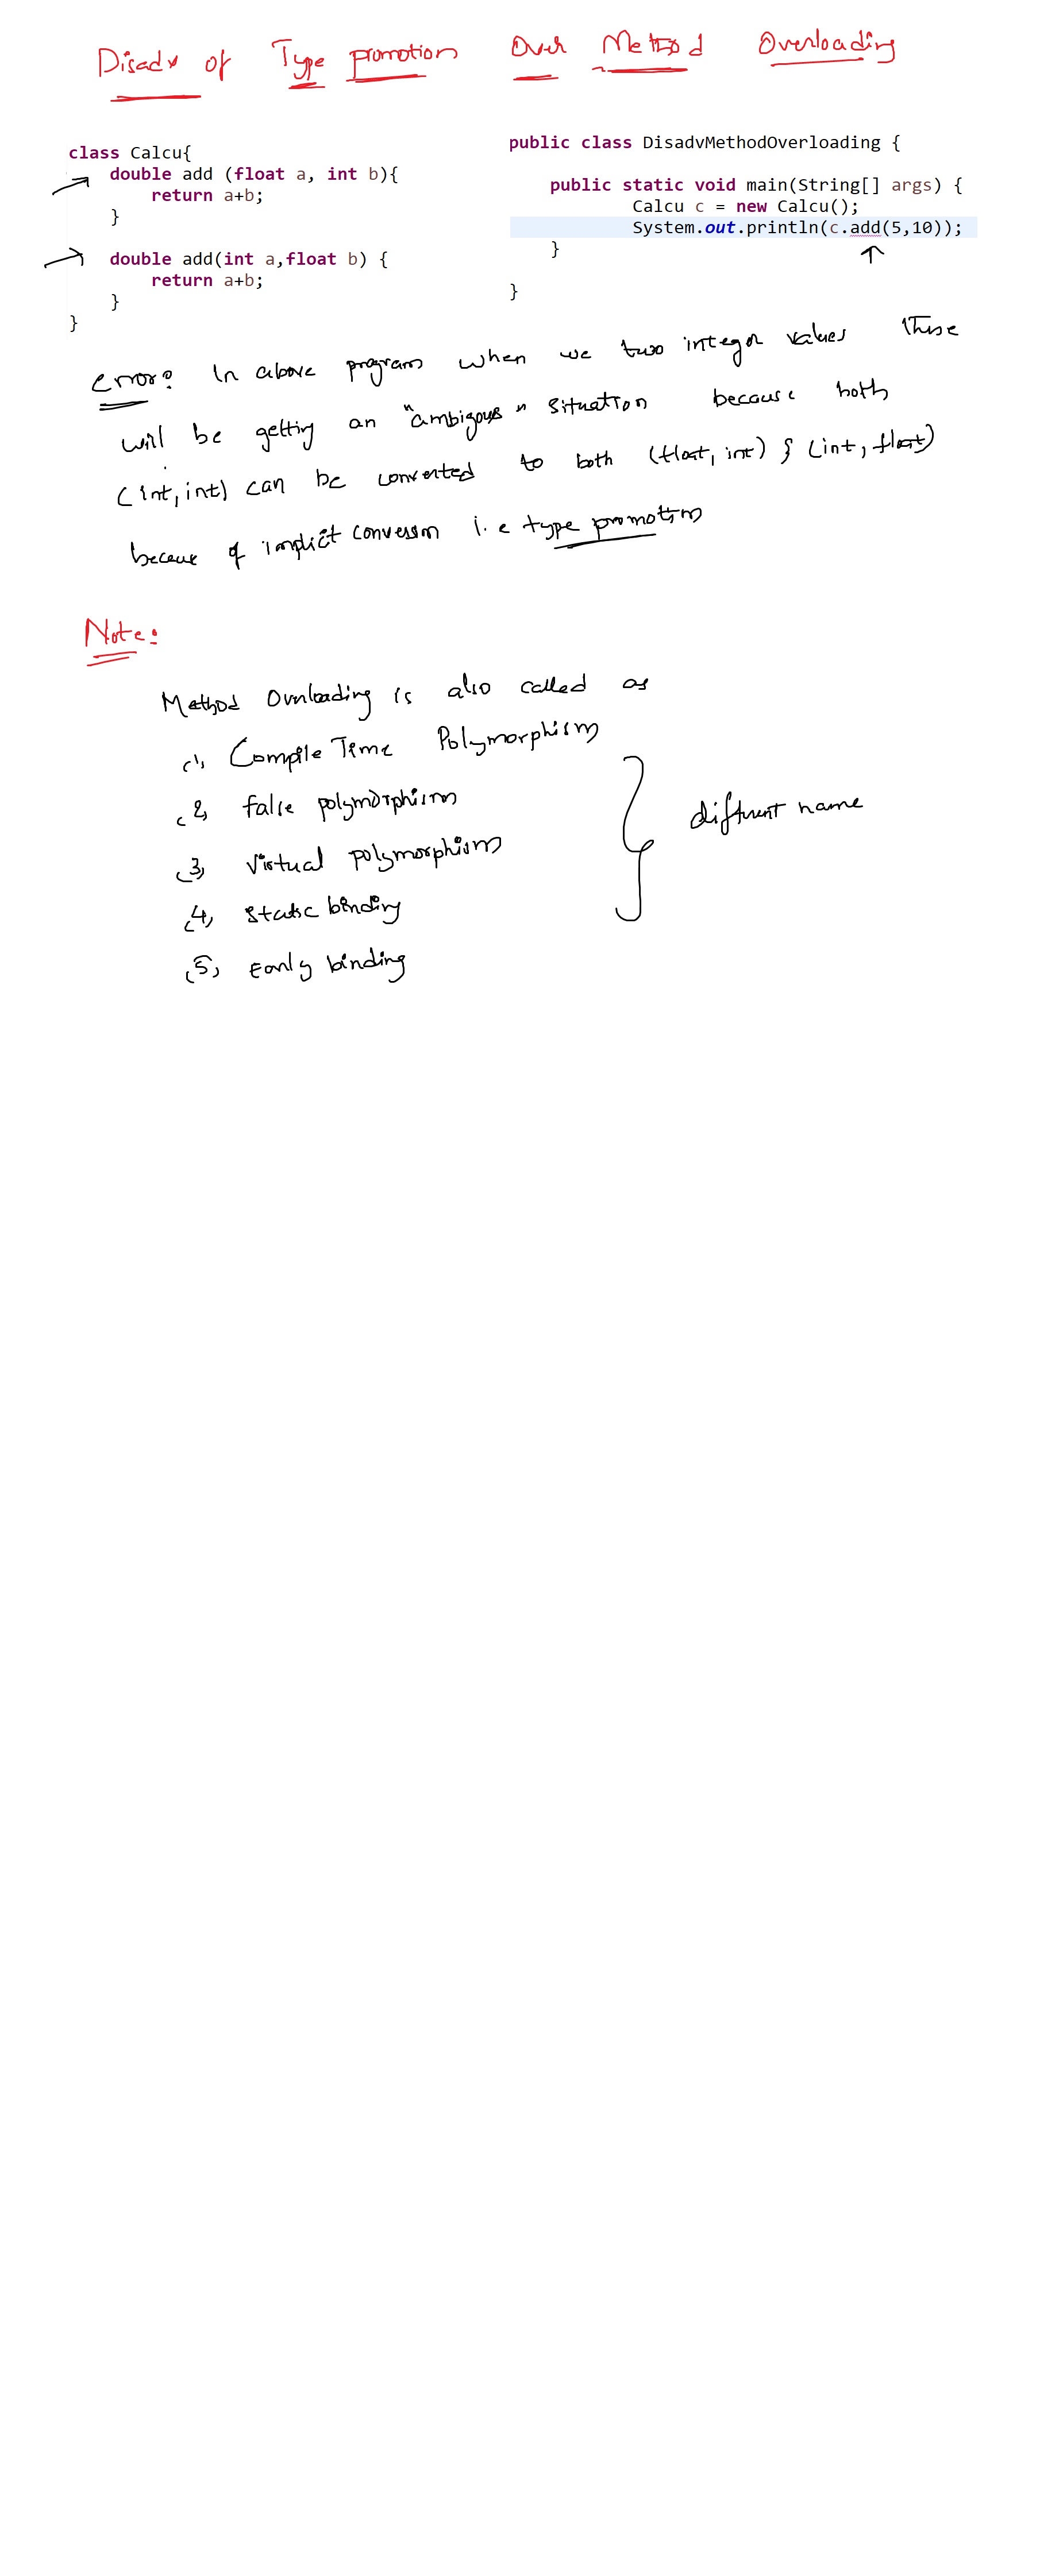 Disadv of Type promotion Over Method Overloading
class Calcu{
double add (float a, int b){
return a+b;
}
double add(int a,float b) {
return a+b;
}
}
public class DisadvMethodOverloading {
public static void main(String[] args) {
Calcu c = new Calcu();
System.out.println(c.add(5,10));
}
}
error: In above program when we two integer values these
will be getting an "ambigous" situation because both
(int, int) can be converted to both (float, int) & (int, float)
because of implicit conversion i.e type promotion
Note:
Method Overloading is also called as
(1) Compile Time Polymorphism
(2) false polymorphism
(3) Virtual polymorphism
(4) static binding
(5) Early binding
different name